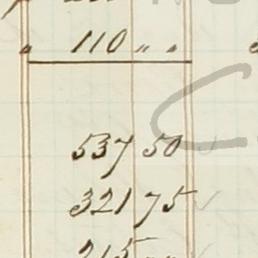 110 " "
537 50
321 75
215